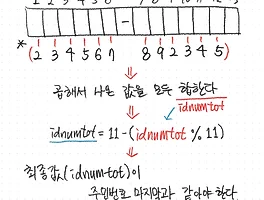 -
* (2 3 4 5 6 7 8 9 2 3 4 5)
곱해서 나온 값을 모두 합한다
idnumtot
idnumtot = 11 - (idnumtot % 11)
최종값(idnumtot)이
주민번호 마지막과 같아야 한다.